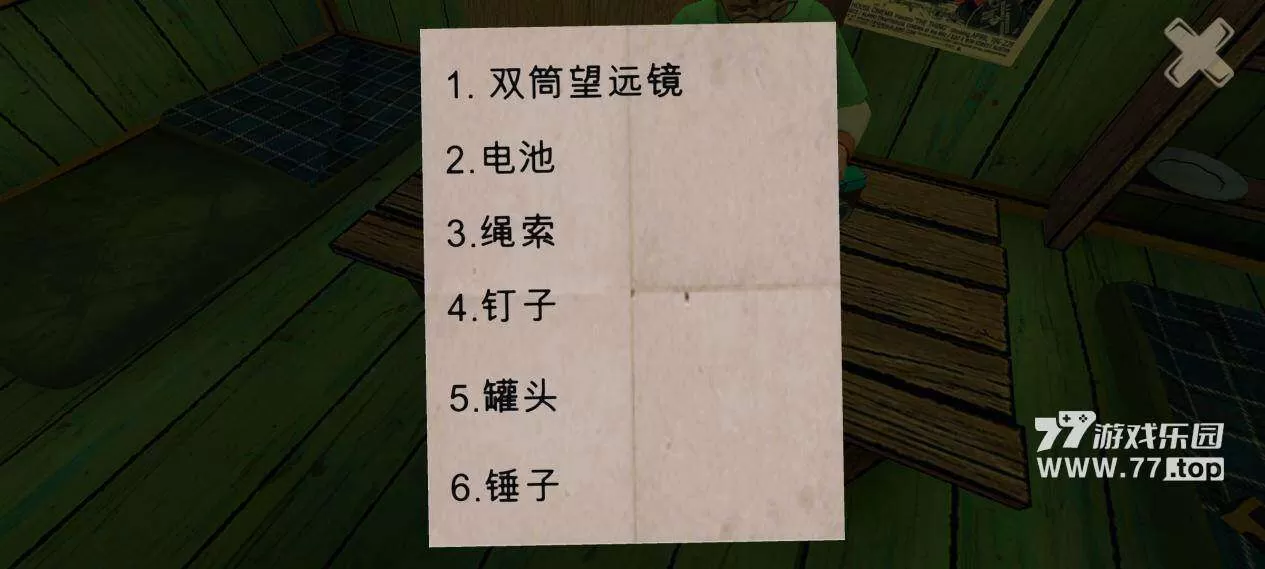 1. 双筒望远镜
2.电池
3.绳索
4.钉子
5.罐头
6.锤子
77游戏乐园
www.77.top